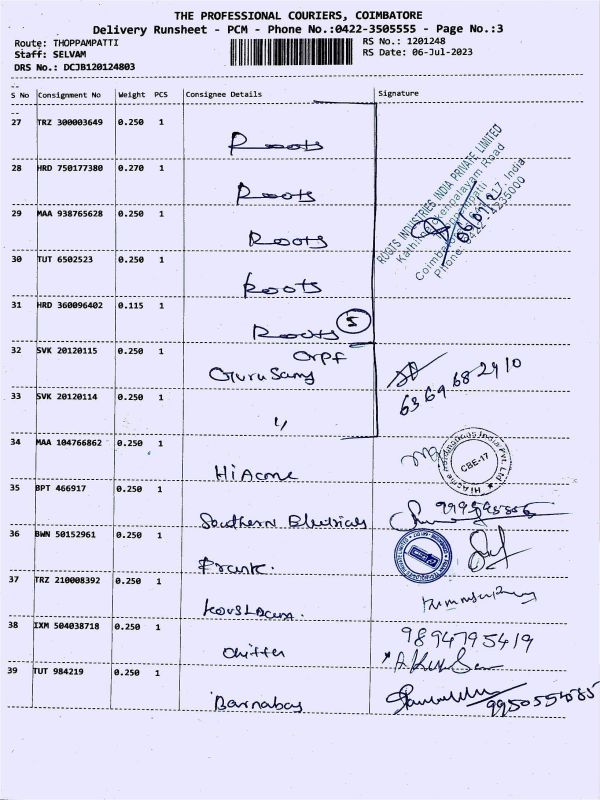 THE PROFESSIONAL COURIERS, COIMBATORE
Delivery Runsheet - PCM - Phone No.:0422-3505555 - Page No.:3
Route: THOPPAMPATTI
RS No.: 1201248
Staff: SELVAM
RS Date: 06-Jul-2023
DRS No.: DCJB120124803
S No Consignment No Weight PCS Consignee Details Signature
27 TRZ 300003649 0.250 1 Roots
28 HRD 750177380 0.270 1 Roots
ROOTS INDUSTRIES INDIA PRIVATE LIMITED
29 MAA 938765628 0.250 1 Roots
30 TUT 6502523 0.250 1 Roots
31 HRD 360096402 0.115 1 Roots 5
32 SVK 20120115 0.250 1 Guru Samy
6369682910
33 SVK 20120114 0.250 1 "
34 MAA 104766862 0.250 1 Hi Acme
CBE-17
35 BPT 466917 0.250 1 Southern Electricals
36 BWN 50152961 0.250 1 Prank.
37 TRZ 210008392 0.250 1
38 IXM 504038718 0.250 1
9894795419
39 TUT 984219 0.250 1 Barnabas